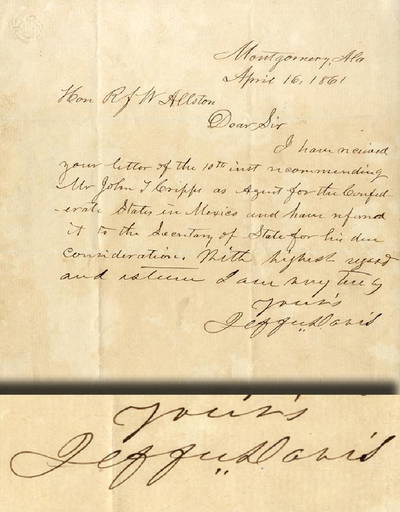 Montgomery, Ala
April 16, 1861
Hon R f W Allston
Dear Sir
I have received
your letter of the 10th inst recommending
Mr John T Cripps as Agent for the Confed-
erate States in Mexico and have referred
it to the Secretary of State for his due
consideration. With highest regard
and esteem I am very truly
Yours
Jeffn Davis
Yours
Jeffn Davis